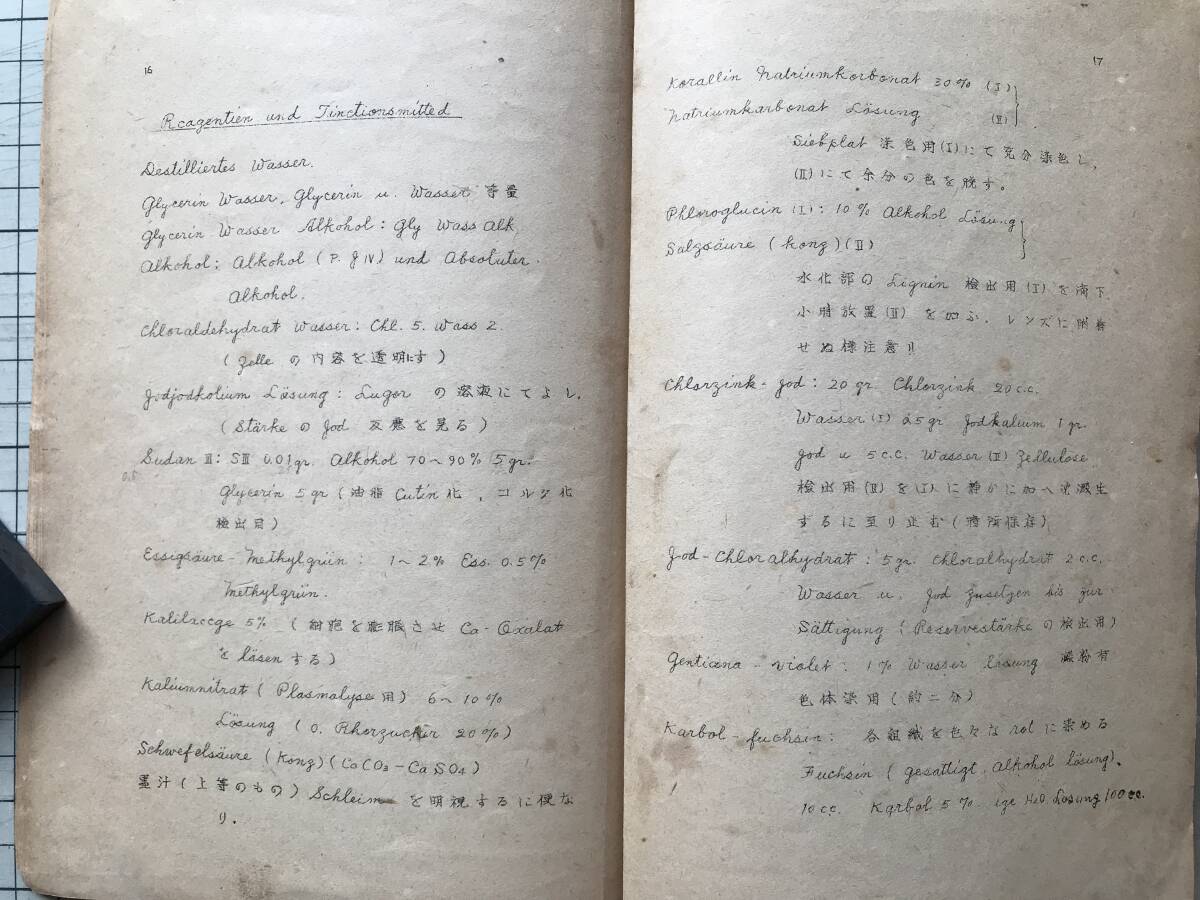 16
Reagentien und Tinctionsmitted
Destilliertes Wasser.
Glycerin Wasser, Glycerin u. Wasser 等量
Glycerin Wasser Alkohol: Gly Wass Alk.
Alkohol: Alkohol (P. J IV) und Absoluter.
Alkohol.
Chloraldehydrat Wasser: Chl. 5. Wass 2.
(Zelle の内容を透明にす)
Jodjodkolium Lösung: Lugor の溶液にてよし.
(Stärke の Jod 反應を見る)
Sudan III: SIII 0.01 gr. Alkohol 70~90% 5 gr.
Glycerin 5 gr (油脂 Cutin 化, コルク化
検出目)
Essigsäure-Methylgrün: 1~2% Ess. 0.5%
Methylgrün.
Kalilaccge 5% (細胞を膨脹させ Ca-Oxalat
を läsen する)
Kaliumnitrat (Plasmalyse 用) 6~10%
Lösung (o. Rhorzucker 20%)
Schwefelsäure (Konz) (CaCO3-CaSO4)
墨汁(上等のもの) Schleim を明視するに便な
り.
17
Korallin Natriumkorbonat 30% (I)
Natriumkarbonat Lösung (II)
Siebplat 染色用(I)にて充分染色し,
(II)にて余分の色を脱す。
Phloroglucin (I): 10% Alkohol Lösung
Salzsäure (konz) (II)
木化部の Lignin 検出用(I)を滴下
小時放置(II)を加ふ. レンズに附着
せぬ様注意!!
Chlorzink-Jod: 20 gr. Chlorzink 20 c.c.
Wasser (I) 25 gr Jodkalium 1 gr.
Jod u 5 c.c. Wasser (II) Zellulose
検出用(II)を(I)に静かに加へ沈澱生
するに至り止む(暗所保存)
Jod-Chloralhydrat: 5 gr. Chloralhydrat 2 c.c.
Wasser u. Jod Zusetzen bis zur
Sättigung (Reservestärke の検出用)
Genticna-violet: 1% Wasser lösung 澱粉有
色体染用(約二分)
Karbol-fuchsin: 各組織を色々な rot に染める
Fuchsin (gesattigt. Alkohol lösung).
10 c.c. Karbol 5% ige H2O Lösung 100 cc.